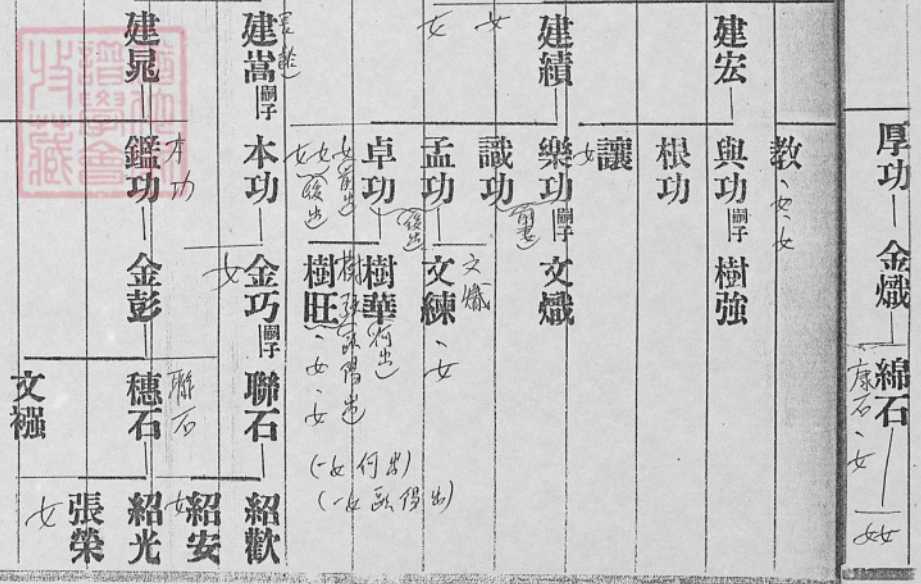 厚功 金熾 綿石
康石、女
女女
教、女、女
建宏
與功 嗣子 樹強
根功
讓
女
建績
樂功 嗣子 文熾
識功
女
女
孟功 文練、女
文熾
卓功 樹華
何出
樹旺、女、女
女
女
女
後出
(一女何出)
(一女歐陽出)
建嵩 嗣子 本功 金巧 嗣子 聯石 紹歡
女
紹安
女
建晁 鑑功 金彭 穗石 紹光
本功
聯石
張榮
女
文襁
譜學會
收藏